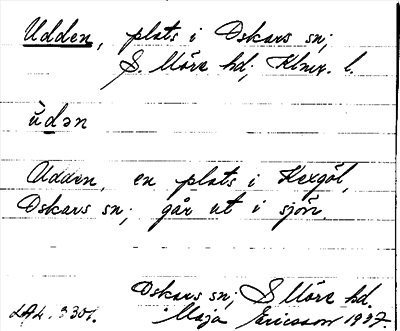 Udden, plats i Oskars sn;
S. Möre hd; Klmr. l.
ùdən
Udden, en plats i Kexgöl,
Oskars sn; går ut i sjön.
Oskars sn; S Möre hd.
LAL. 3301. Maja Ericsson 1937.